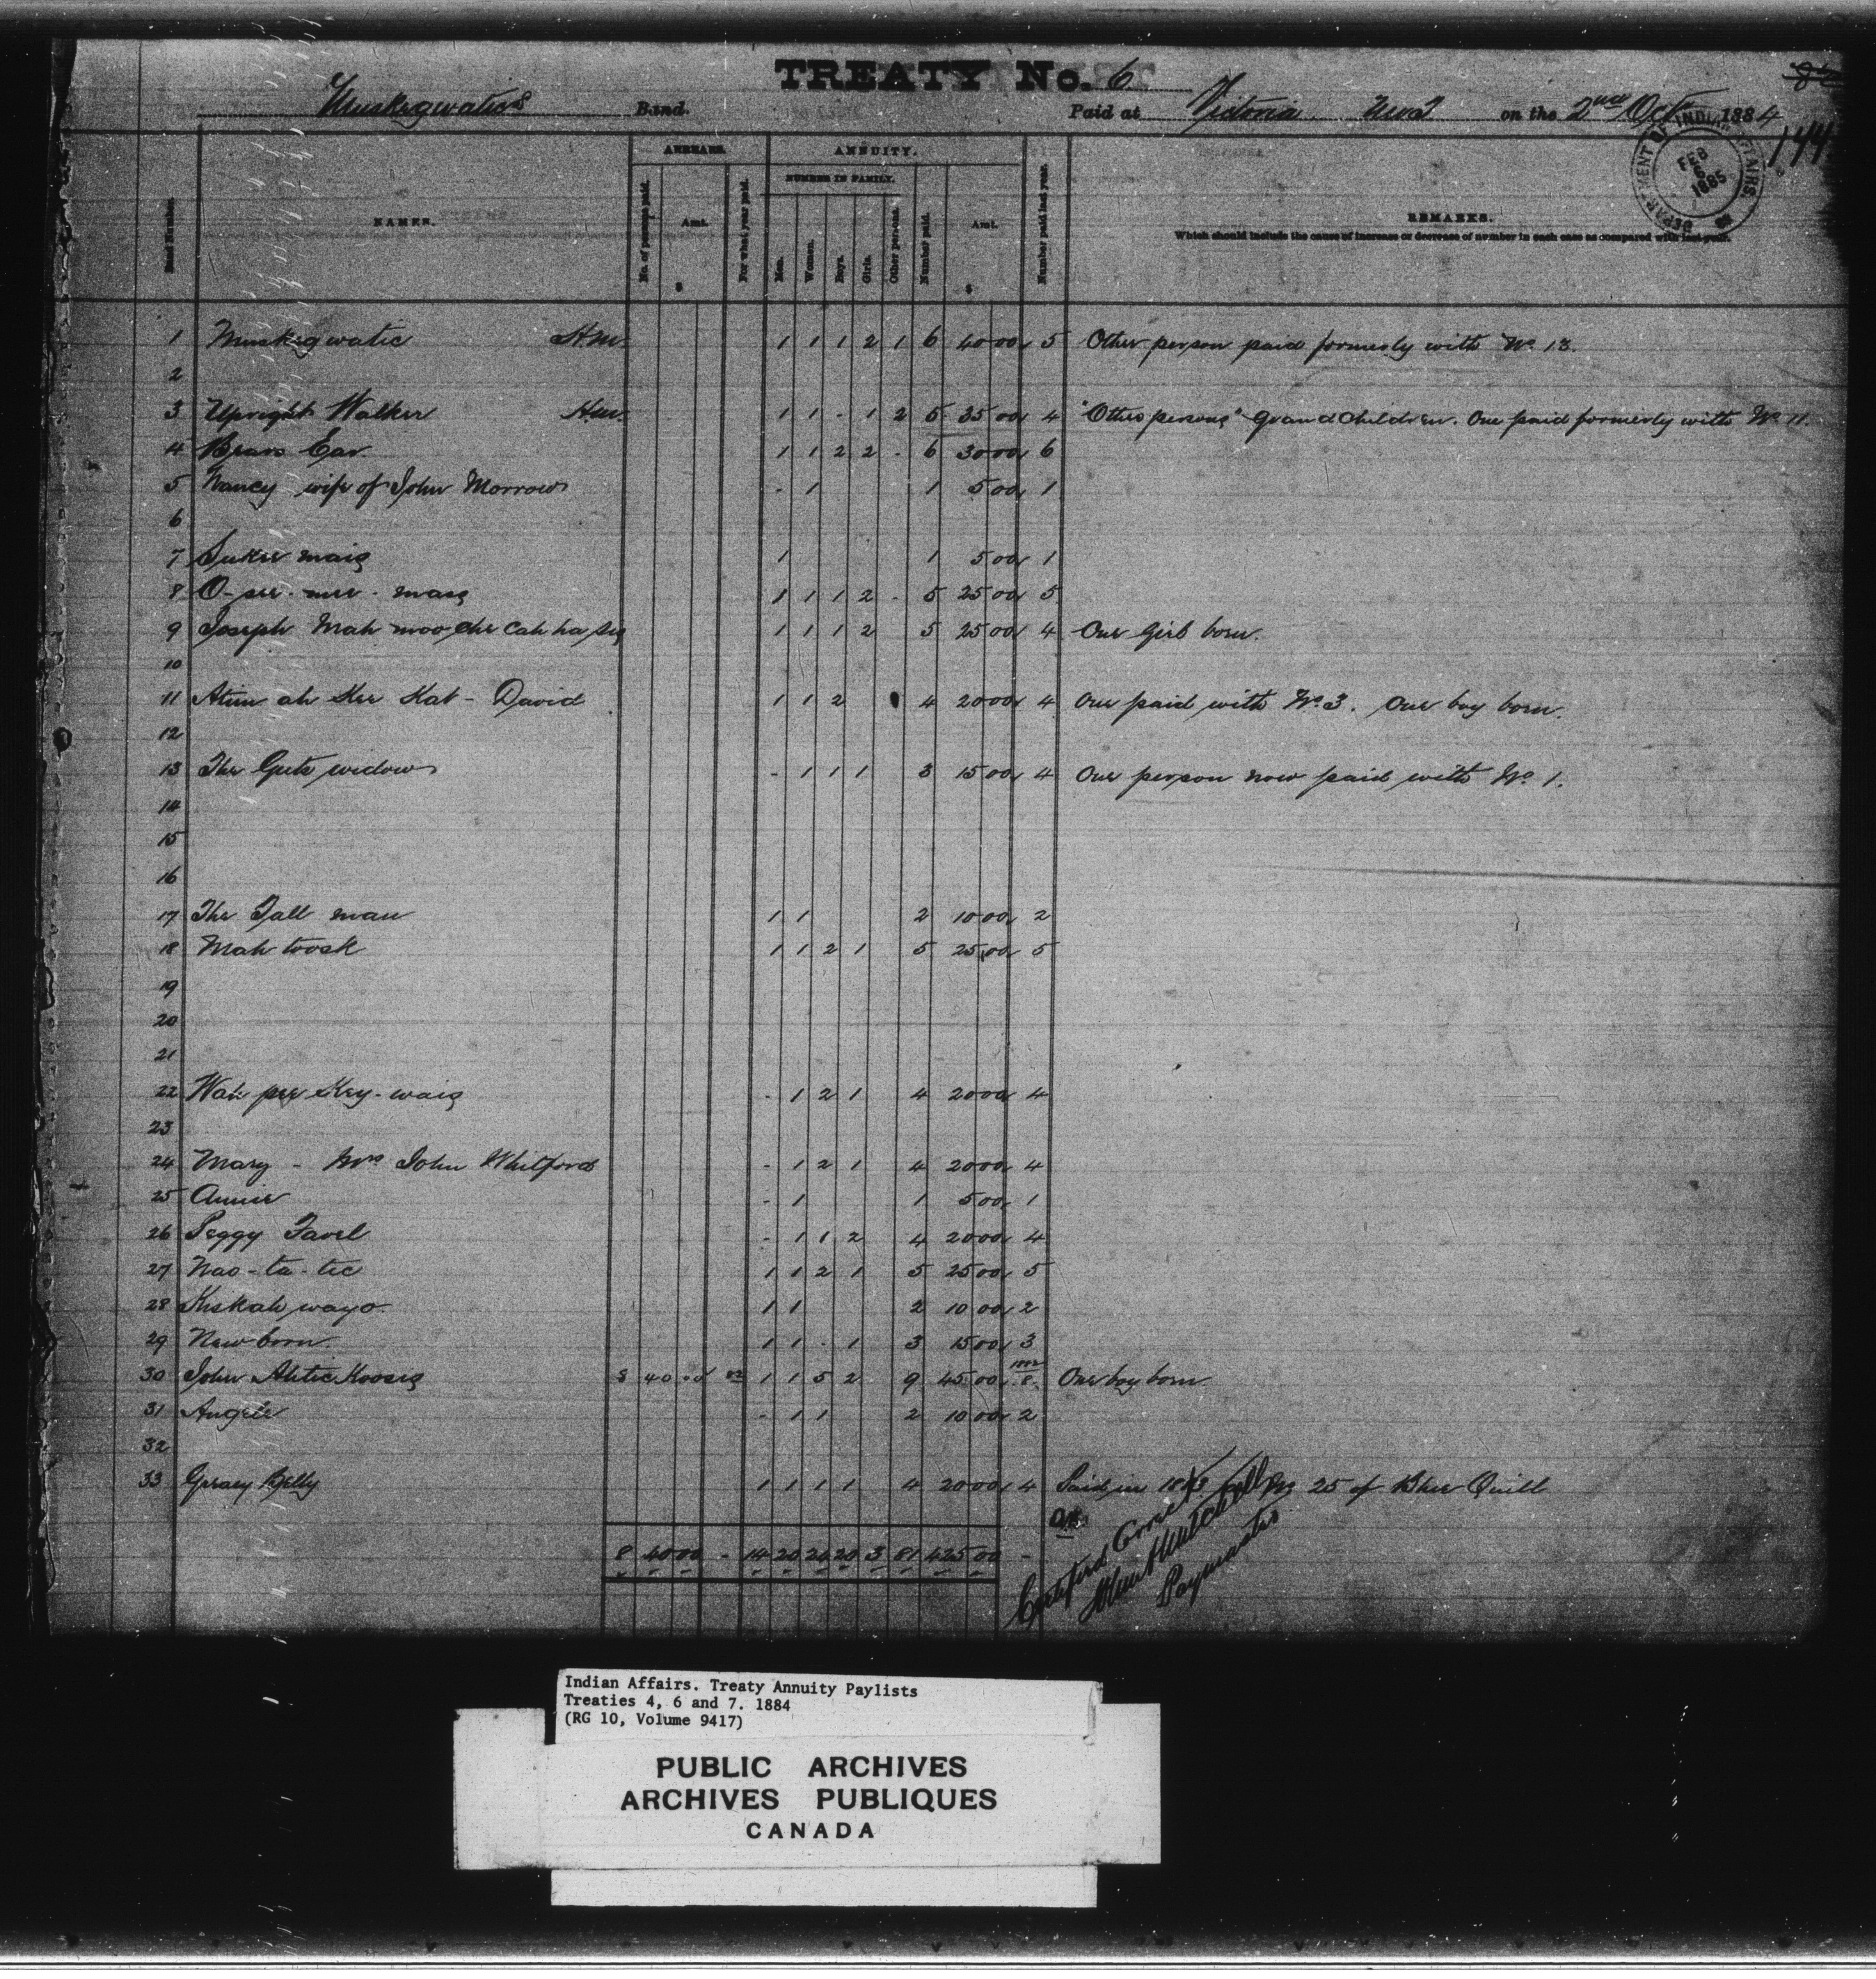 TREATY No. 6
Muskegwatic's Band. Paid at Victoria N.W.T on the 2nd Oct 1884
144
DEPARTMENT OF INDIAN AFFAIRS FEB 6 1885
ARREARS. ANNUITY.
NUMBER IN FAMILY.
Band Number. NAMES. No. of persons paid. Amt. $ For what year paid. Men. Women. Boys. Girls. Other persons. Number paid. Amt. $ Number paid last year. REMARKS.
Which should include the cause of increase or decrease of number in each case as compared with last year.
1 Muskegwatic H.m. 1 1 1 2 1 6 40 00 5 Other person paid formerly with No. 13.
2
3 Upright Walker H.m. 1 1 - 1 2 5 35 00 4 "Other persons" Grandchildren. One paid formerly with No. 11.
4 Bears Ear 1 1 2 2 - 6 30 00 6
5 Nancy wife of John Morrow - 1 1 5 00 1
6
7 1 1 5 00 1
8 1 1 1 2 - 5 25 00 5
9 Joseph Mah moo che cah ha 1 1 1 2 5 25 00 4 One girl born.
10
11 Atim ah Kee Kat - David 1 1 2 4 20 00 4 One paid with No. 3. One boy born.
12
13 The Guts widow - 1 1 1 3 15 00 4 One person now paid with No. 1.
14
15
16
17 The Tall man 1 1 2 10 00 2
18 Mah toosk 1 1 2 1 5 25 00 5
19
20
21
22 Wah pee Key-waig - 1 2 1 4 20 00 4
23
24 Mary - Mrs John Whitford - 1 2 1 4 20 00 4
25 Annie - 1 1 5 00 1
26 Peggy Favel - 1 1 2 4 20 00 4
27 Nao-ta-tic 1 1 2 1 5 25 00 5
28 Kiskah wayo 1 1 2 10 00 2
29 New born 1 1 - 1 3 15 00 3
30 John Ahtic Koosig 8 40 00 82 1 1 5 2 9 45 00 1882 8 One boy born
31 Angele - 1 1 2 10 00 2
32
33 Greasy Belly 1 1 1 1 4 20 00 4 Paid in 1883 No 25 of Blue Quill
8 40 00 - 14 20 24 20 3 81 425 00 -
Certified Correct
Mitchell
Paymaster
Indian Affairs. Treaty Annuity Paylists
Treaties 4, 6 and 7. 1884
(RG 10, Volume 9417)
PUBLIC ARCHIVES
ARCHIVES PUBLIQUES
CANADA